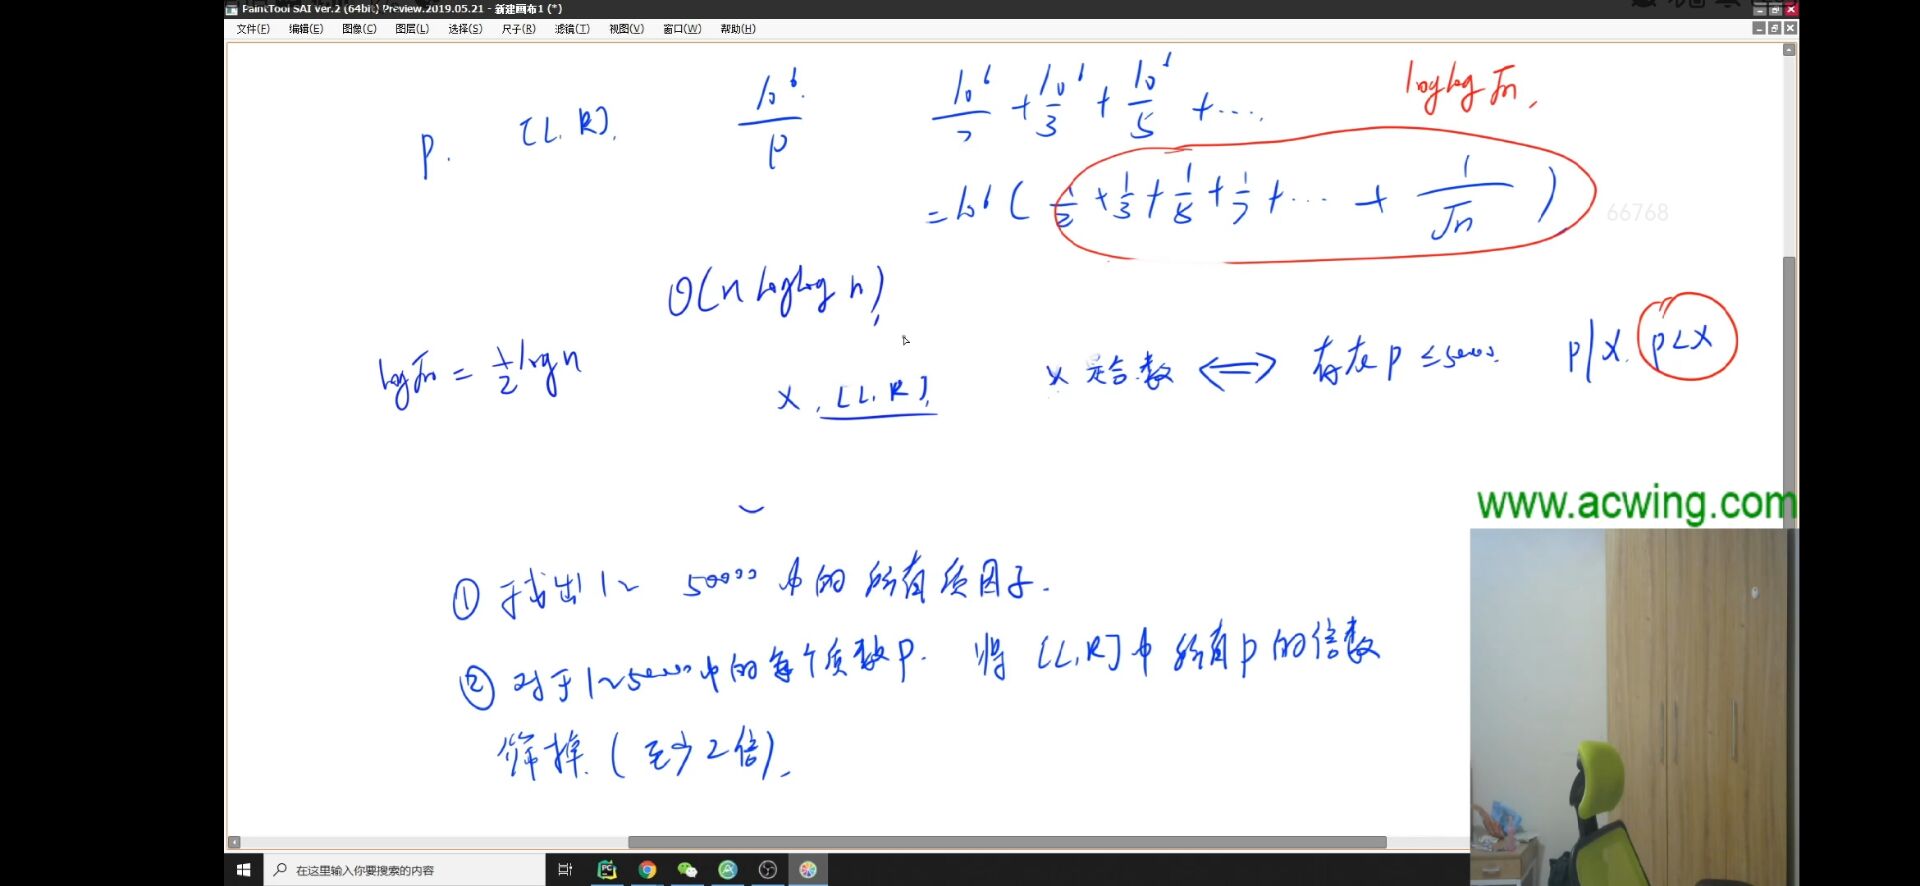 PaintTool SAI Ver.2 (64bit) Preview.2019.05.21 - 新建画布1 (*)
文件(F) 编辑(E) 图像(C) 图层(L) 选择(S) 尺子(R) 滤镜(T) 视图(V) 窗口(W) 帮助(H)
p. [L, R]. 10^6/p 10^6/2 + 10^6/3 + 10^6/5 + .... loglog√n.
= 10^6 ( 1/2 + 1/3 + 1/5 + 1/7 + ... + 1/√n )
66768
O(n loglog n)
log√n = 1/2 log n
x, [L, R].
x 是合数 ⟺ 存在 p ≤ 50000. p|x. p<x
www.acwing.com
① 找出1~50000中的所有质因子.
② 对于1~50000中的每个质数p. 将[L,R]中所有p的倍数
筛掉(至少2倍).
在这里输入你要搜索的内容